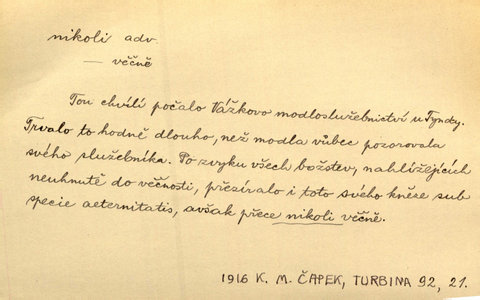 nikoli adv.
— věčně
Tou chvílí počalo Vážkovo modloslužebnictví u Tyndy.
Trvalo to hodně dlouho, než modla vůbec pozorovala
svého služebníka. Po zvyku všech božstev, nahlížejících
neuhnutě do věčnosti, přezíralo i toto svého kněze sub
specie aeternitatis, avšak přece nikoli věčně.
1916 K. M. ČAPEK, TURBINA 92, 21.